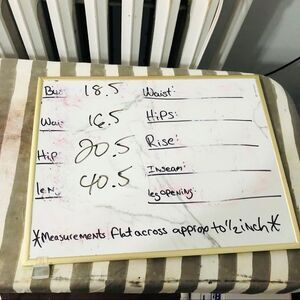 Bus 18.5 Waist:
Wai 16.5 Hips:
Hip 20.5 Rise:
len 40.5 Inseam:
leg opening:
*Measurements flat across approp to 1/2 inch*